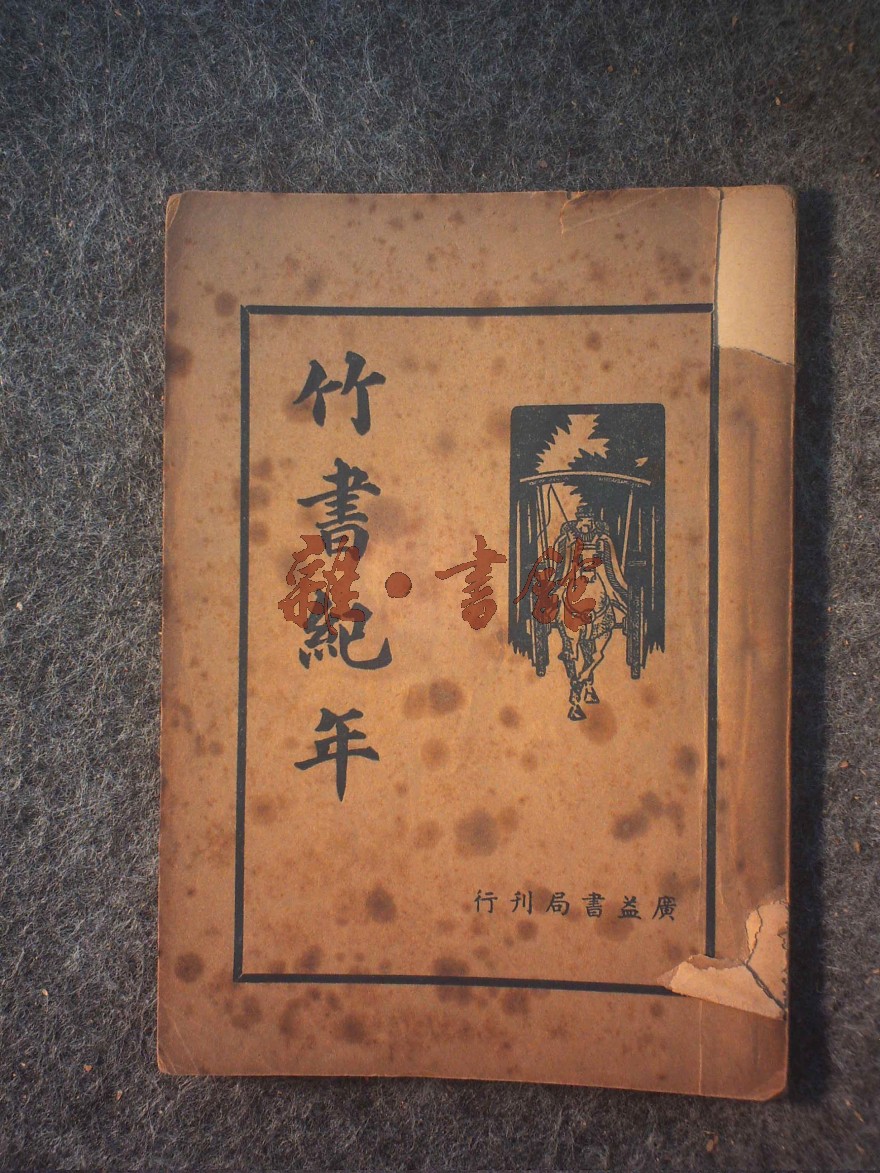 竹書紀年
雜·書館
廣益書局刊行